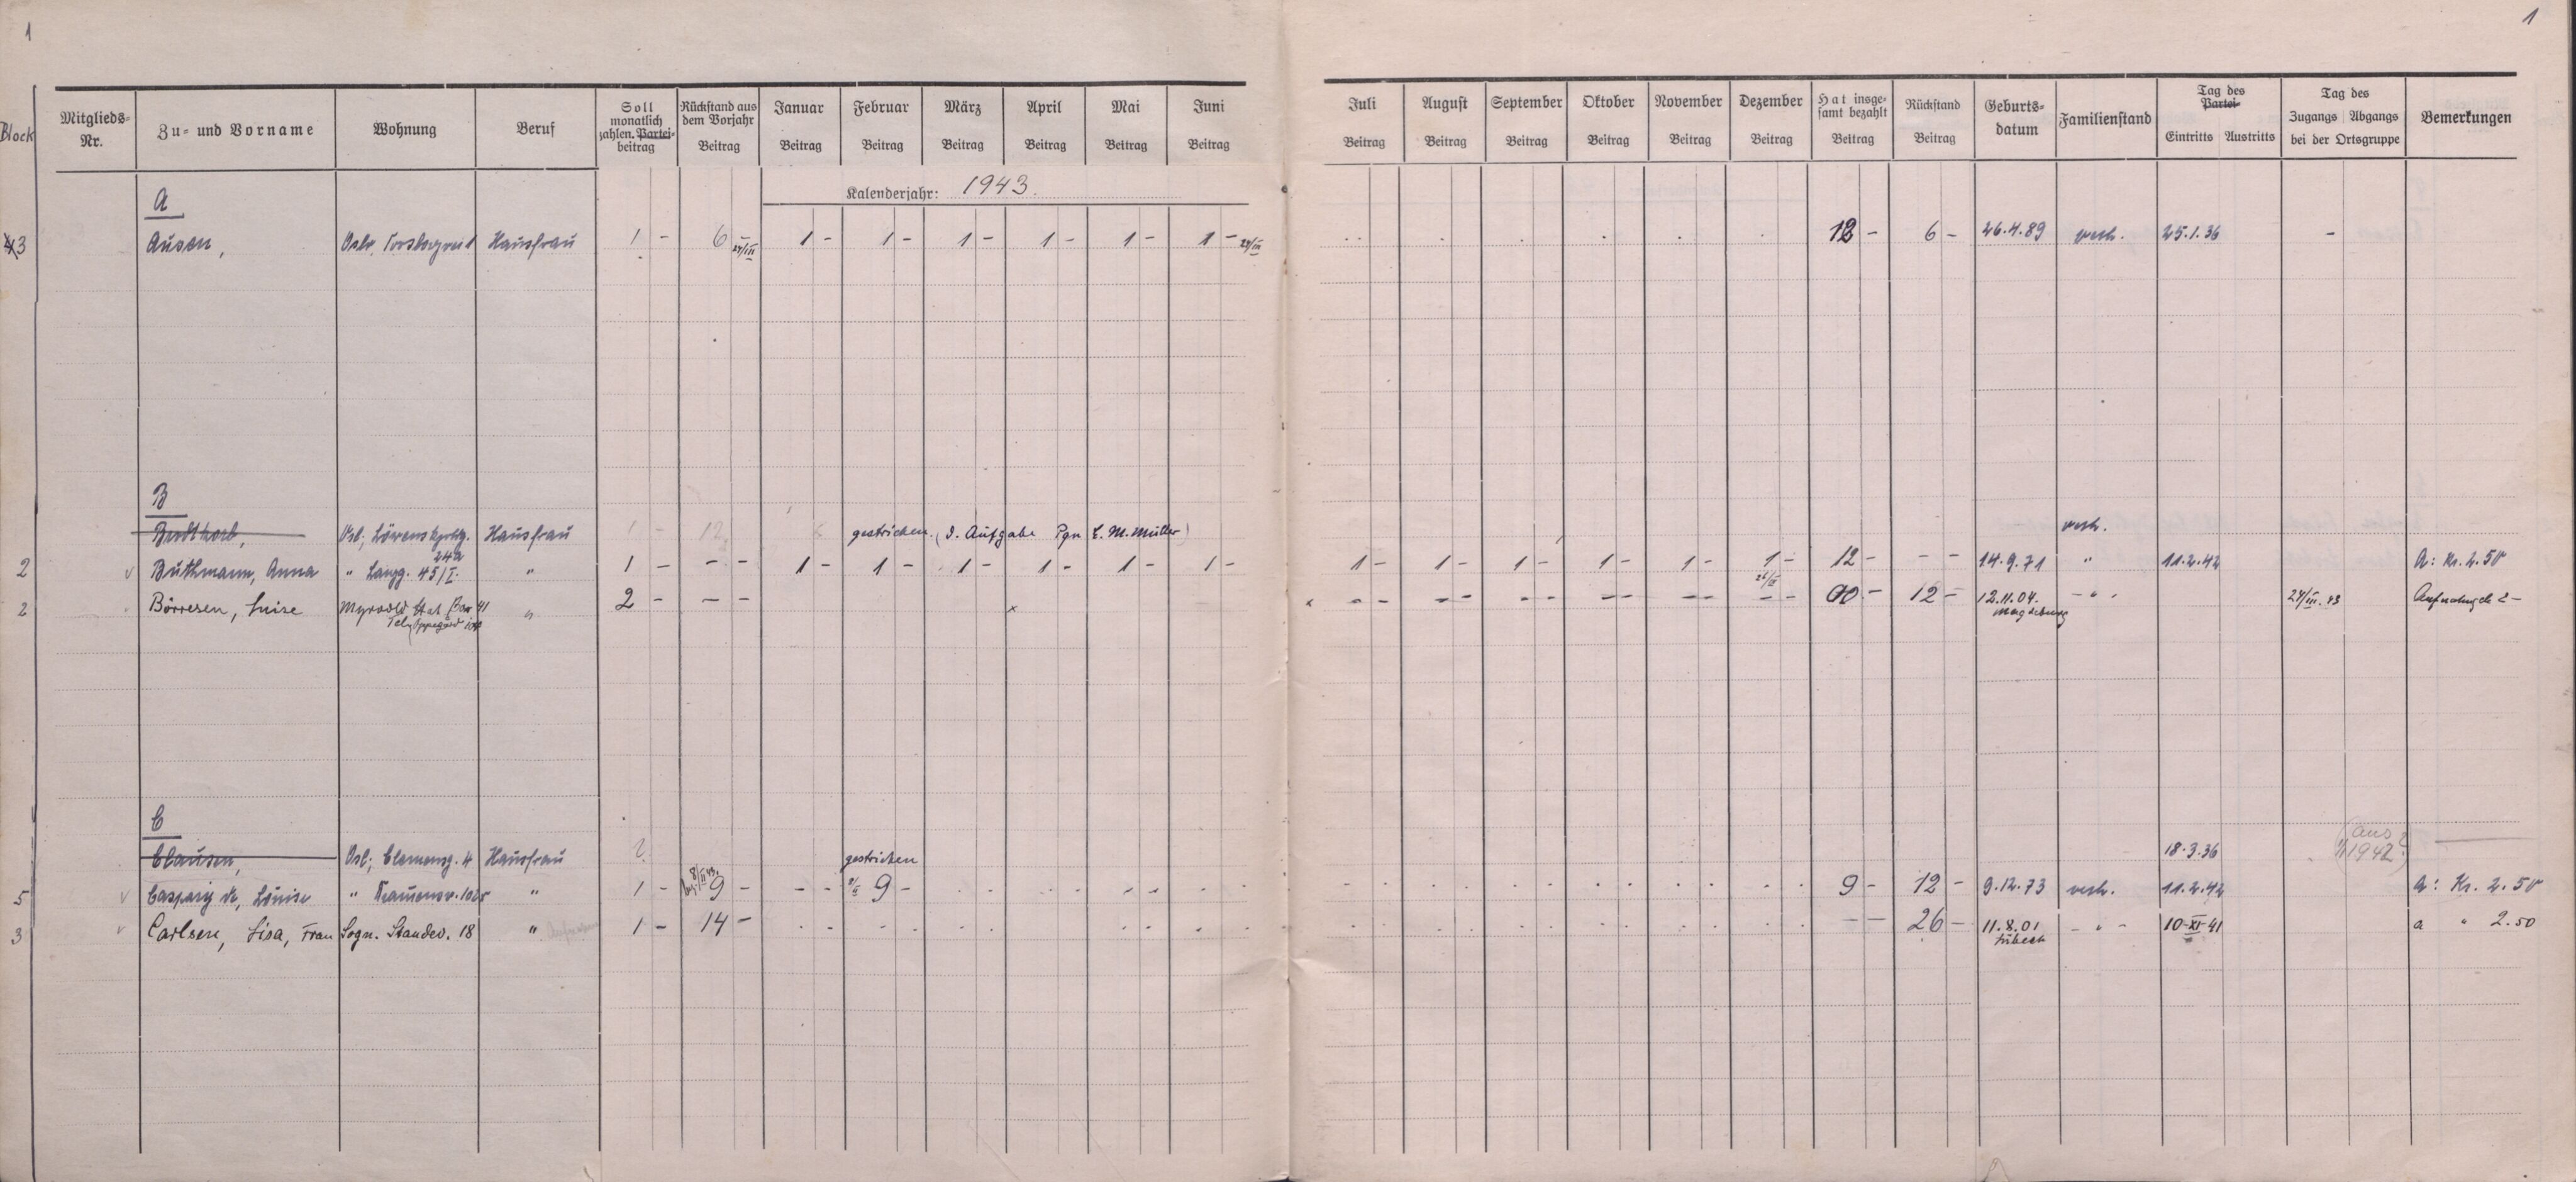 1
1
Block
Mitglieds-Nr.
Zu- und Vorname
Wohnung
Beruf
Soll monatlich zahlen. Partei-beitrag
Rückstand aus dem Vorjahr Beitrag
Januar Beitrag
Februar Beitrag
März Beitrag
April Beitrag
Mai Beitrag
Juni Beitrag
Juli Beitrag
August Beitrag
September Beitrag
Oktober Beitrag
November Beitrag
Dezember Beitrag
Hat insge-samt bezahlt Beitrag
Rückstand Beitrag
Geburts-datum
Familienstand
Tag des Partei- Eintritts Austritts
Tag des Zugangs Abgangs bei der Ortsgruppe
Bemerkungen
Kalenderjahr: 1943.
A
3 Ausen, Hausfrau 1 - 6 - 1 - 1 - 1 - 1 - 1 - 1 - 12 - 6 - 26.4.89 verh. 25.1.36 -
B
Osl., Hausfrau 12 gestrichen. (d. Aufgabe Pgn E. M. Müller) verh.
24a
2 Buthmann, Anna " Langg. 45/I. " 1 - - - 1 - 1 - 1 - 1 - 1 - 1 - 1 - 1 - 1 - 1 - 1 - 1 - 12 - - - 14.9.71 " 11.2.42 A: Kr. 2.50
2 Börresen, Luise Myrvold Stat. Box 41 " 2 - - - - - - - - - - - - - - - 12 - 12.11.04. - " - 24/III. 43 2 -
Magdeburg
C
Clausen, Osl., Hausfrau ? gestrichen 18.3.36 (aus 1942?)
8/II 43.
5 Louise " " 1 - 9 - - - 9 - 9 - 12 - 9.12.73 verh. 11.2.42 A: Kr. 2.50
3 Carlsen, Lisa, Frau Sogn. Standev. 18 " 1 - 14 - - - 26 - 11.8.01 - " - 10-XI-41 a " 2.50
Lübeck